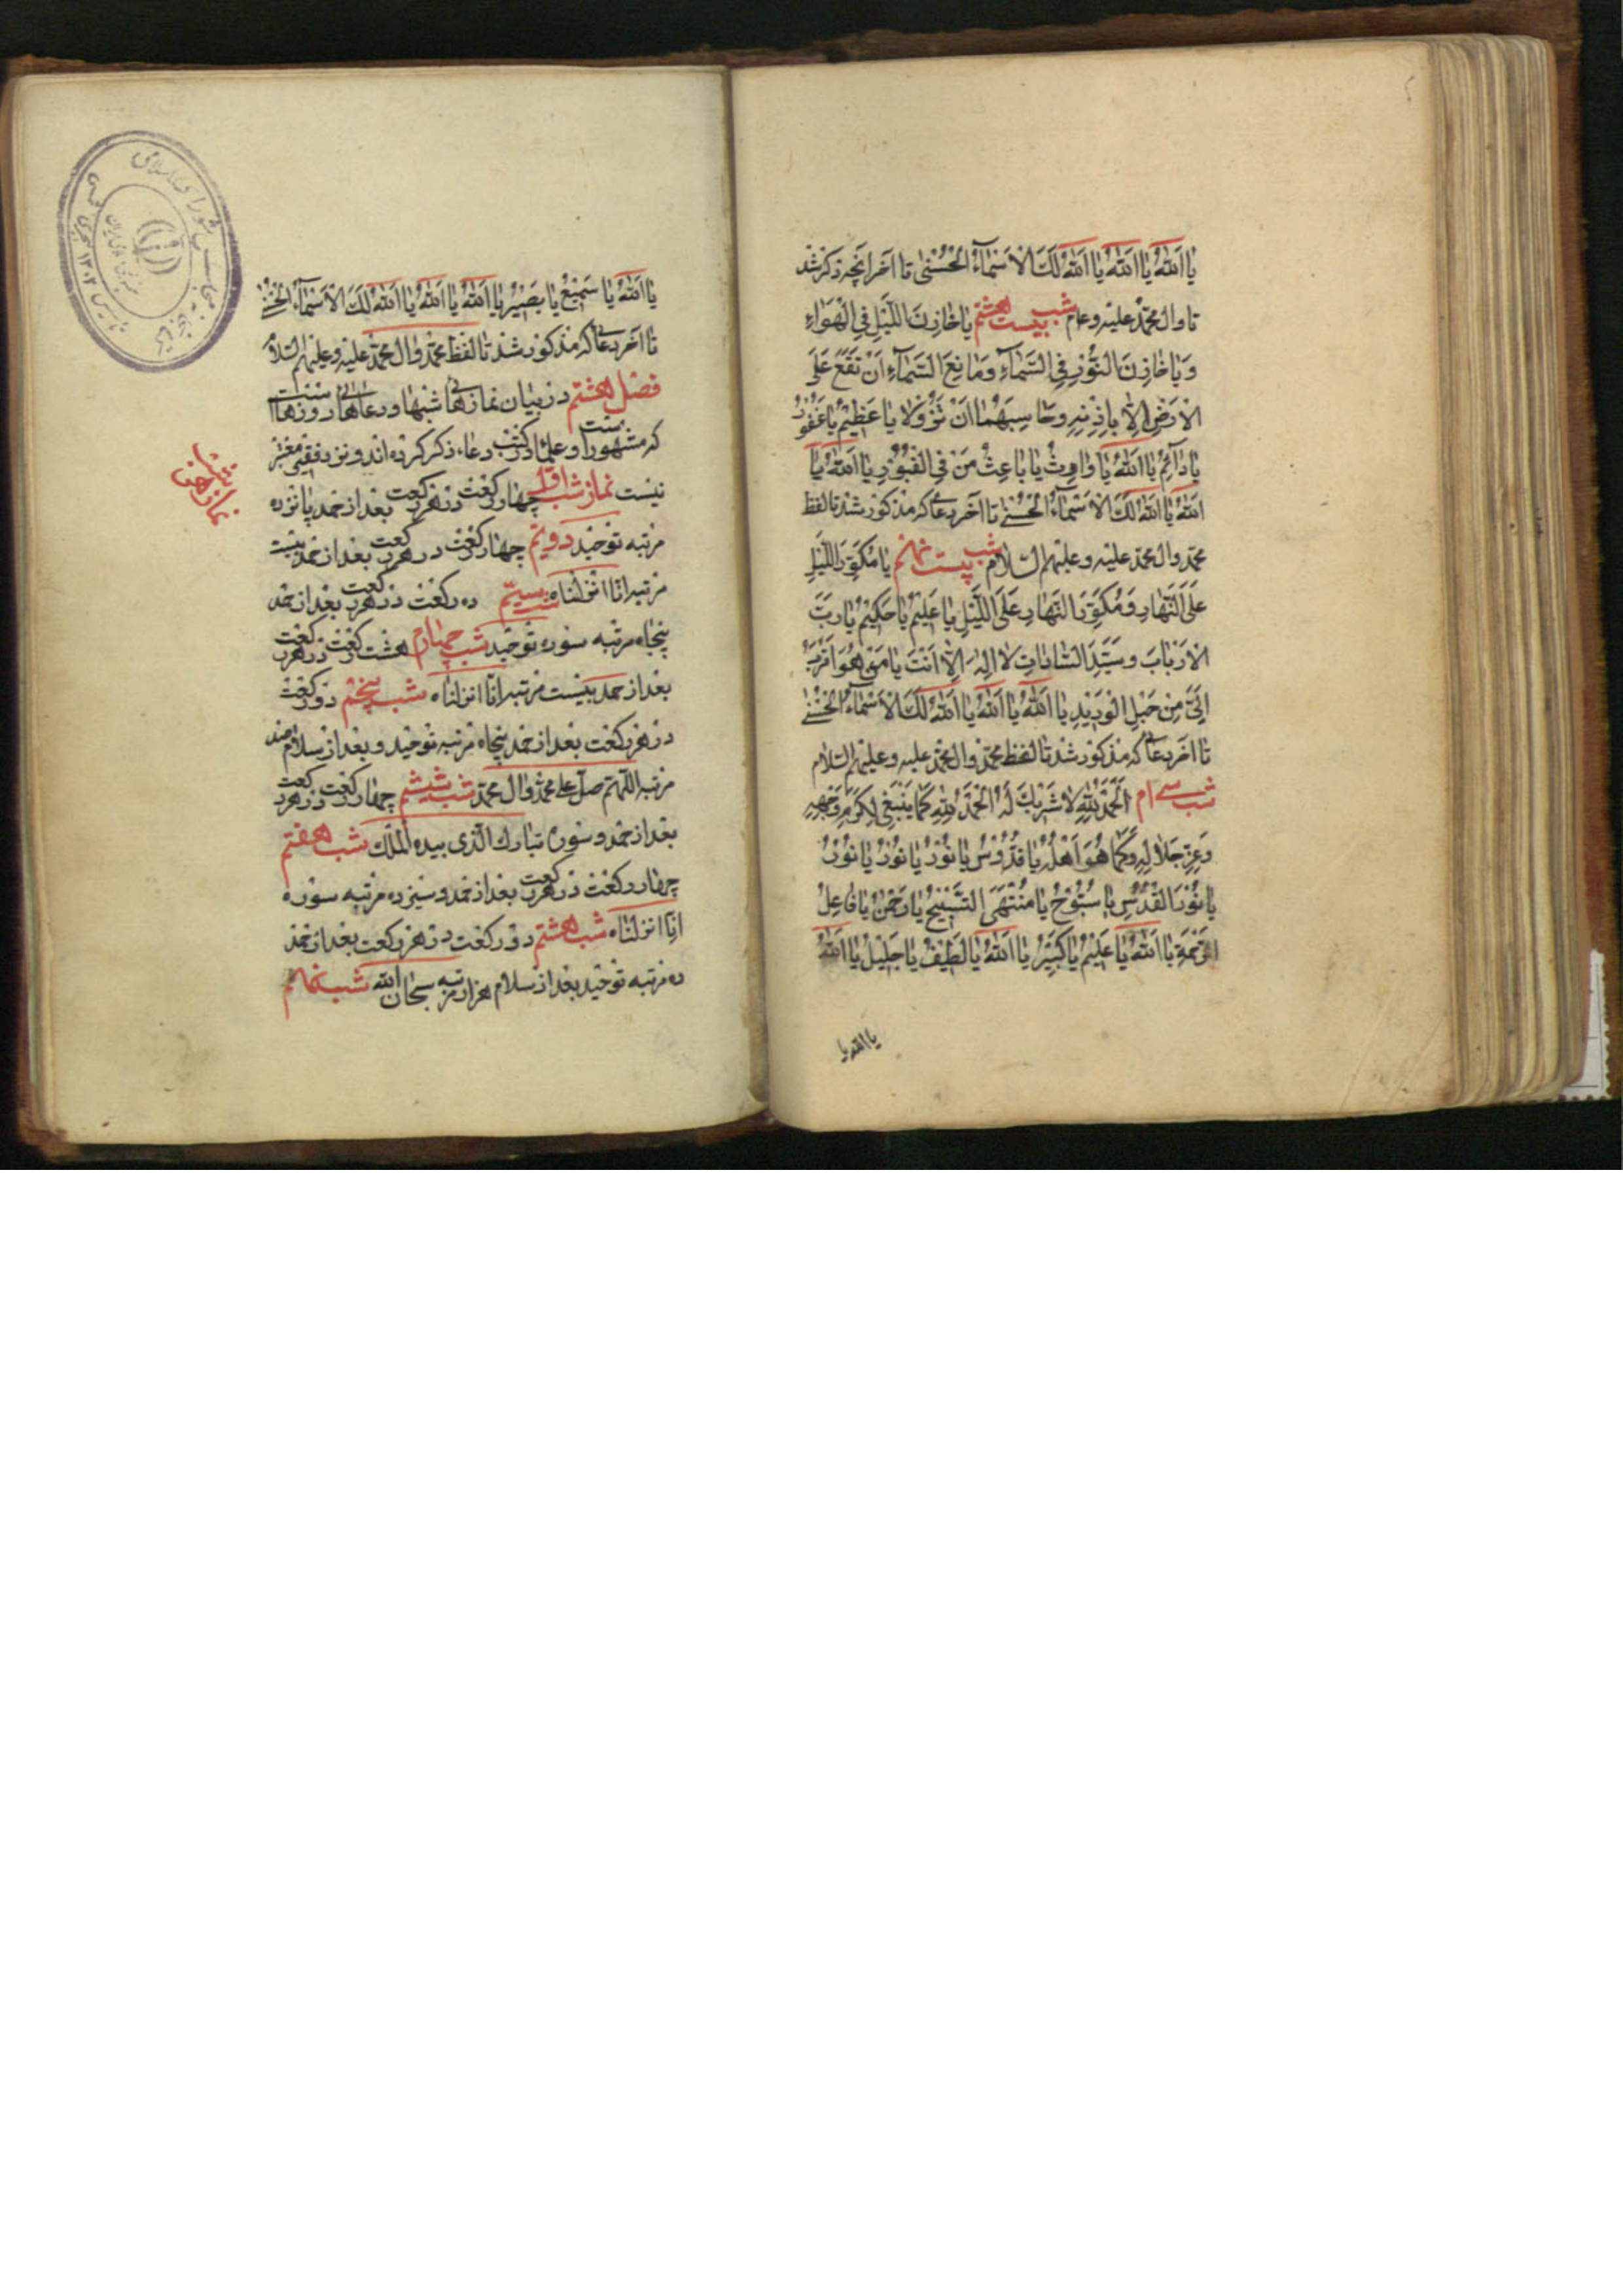 یا اَللّٰهُ یا اَللّٰهُ یا اَللّٰهُ لَكَ الْاَسْمٰاءُ الْحُسْنٰی تا آخر آنچه ذکر شد
تا وال محمّد علیه و عل‍م شب بیست هشتم یا خازِنَ اللَّیْلِ فِی الْهَوٰاءِ
وَ یا خازِنَ النُّوْرِ فِی السَّمٰاءِ وَ مٰانِعَ السَّمٰاءِ اَنْ تَقَعَ عَلَی
الْاَرْضِ اِلّٰا بِاِذْنِهِ وَحٰابِسَهُمٰا اَنْ تَزُوْلٰا یا عَظِیْمُ یا غَفُوْرُ
یا دٰائِمُ یا اَللّٰهُ یا وٰارِثُ یا بٰاعِثُ مَنْ فِی الْقُبُوْرِ یا اَللّٰهُ یا
اَللّٰهُ یا اَللّٰهُ لَكَ الْاَسْمٰاءُ الْحُسْنٰی تا آخر دعائی که مذکور شد تا لفظ
محمّد وال محمّد علیه و علیهم السلام شب بیست نهم یا مُکَوِّرَ اللَّیْلِ
عَلَی النَّهٰارِ وَ مُکَوِّرَ النَّهٰارِ عَلَی اللَّیْلِ یا عَلِیْمُ یا حَکِیْمُ یا رَبَّ
الْاَرْبٰابِ وَ سَیِّدَ السّٰادٰاتِ لٰا اِلٰهَ اِلّٰا اَنْتَ یا مَنْ هُوَ اَقْرَبُ
اِلَیَّ مِنْ حَبْلِ الْوَرِیْدِ یا اَللّٰهُ یا اَللّٰهُ یا اَللّٰهُ لَكَ الْاَسْمٰاءُ الْحُسْنٰی
تا آخر دعائی که مذکور شد تا لفظ محمّد وال محمّد علیه و علیهم السلام
شب سی ام اَلْحَمْدُ لِلّٰهِ لٰا شَرِیْكَ لَهُ اَلْحَمْدُ لِلّٰهِ کَمٰا یَنْبَغِی لِکَرَمِ وَجْهِهِ
وَ عِزِّ جَلٰالِهِ وَ کَمٰا هُوَ اَهْلُهُ یا قُدُّوْسُ یا نُوْرُ یا نُوْرُ یا نُوْرُ
یا نُوْرَ الْقُدْسِ یا سُبُّوْحُ یا مُنْتَهَی التَّسْبِیْحِ یا رَحْمٰنُ یا فٰاعِلَ
الرَّحْمَةِ یا اَللّٰهُ یا عَلِیْمُ یا کَبِیْرُ یا اَللّٰهُ یا لَطِیْفُ یا جَلِیْلُ یا اَللّٰهُ
یا الله یا
یا اَللّٰهُ یا سَمِیْعُ یا بَصِیْرُ یا اَللّٰهُ یا اَللّٰهُ یا اَللّٰهُ لَكَ الْاَسْمٰاءُ الْحُسْنٰی
تا آخر دعائی که مذکور شد تا لفظ محمّد وال محمّد علیه و علیهم السلام
فصل هشتم در بیان نمازهای شبها و دعاهای روزها
که مشهور است و علما در کتب دعاء ذکر کرده اند و نزد فقیر معتبر
نیست نماز شب اوّل چهار رکعت در هر رکعت بعد از حمد پانزده
مرتبه توحید دویّم چهار رکعت در هر رکعت بعد از حمد بیست
مرتبه انّا انزلناه شب سیّم ده رکعت در هر رکعت بعد از حمد
پنجاه مرتبه سوره توحید شب چهارم هشت رکعت در هر رکعت
بعد از حمد بیست مرتبه انّا انزلناه شب پنجم دو رکعت
در هر رکعت بعد از حمد پنجاه مرتبه توحید و بعد از سلام صد
مرتبه اللّهمّ صلّ علی محمّد وال محمّد شب ششم چهار رکعت در هر رکعت
بعد از حمد و سوره تبارك الّذی بیده الملك شب هفتم
چهار رکعت در هر رکعت بعد از حمد و سیزده مرتبه سوره
انّا انزلناه شب هشتم دو رکعت در هر رکعت بعد از حمد
ده مرتبه توحید بعد از سلام هزار مرتبه سبحان الله شب نهم